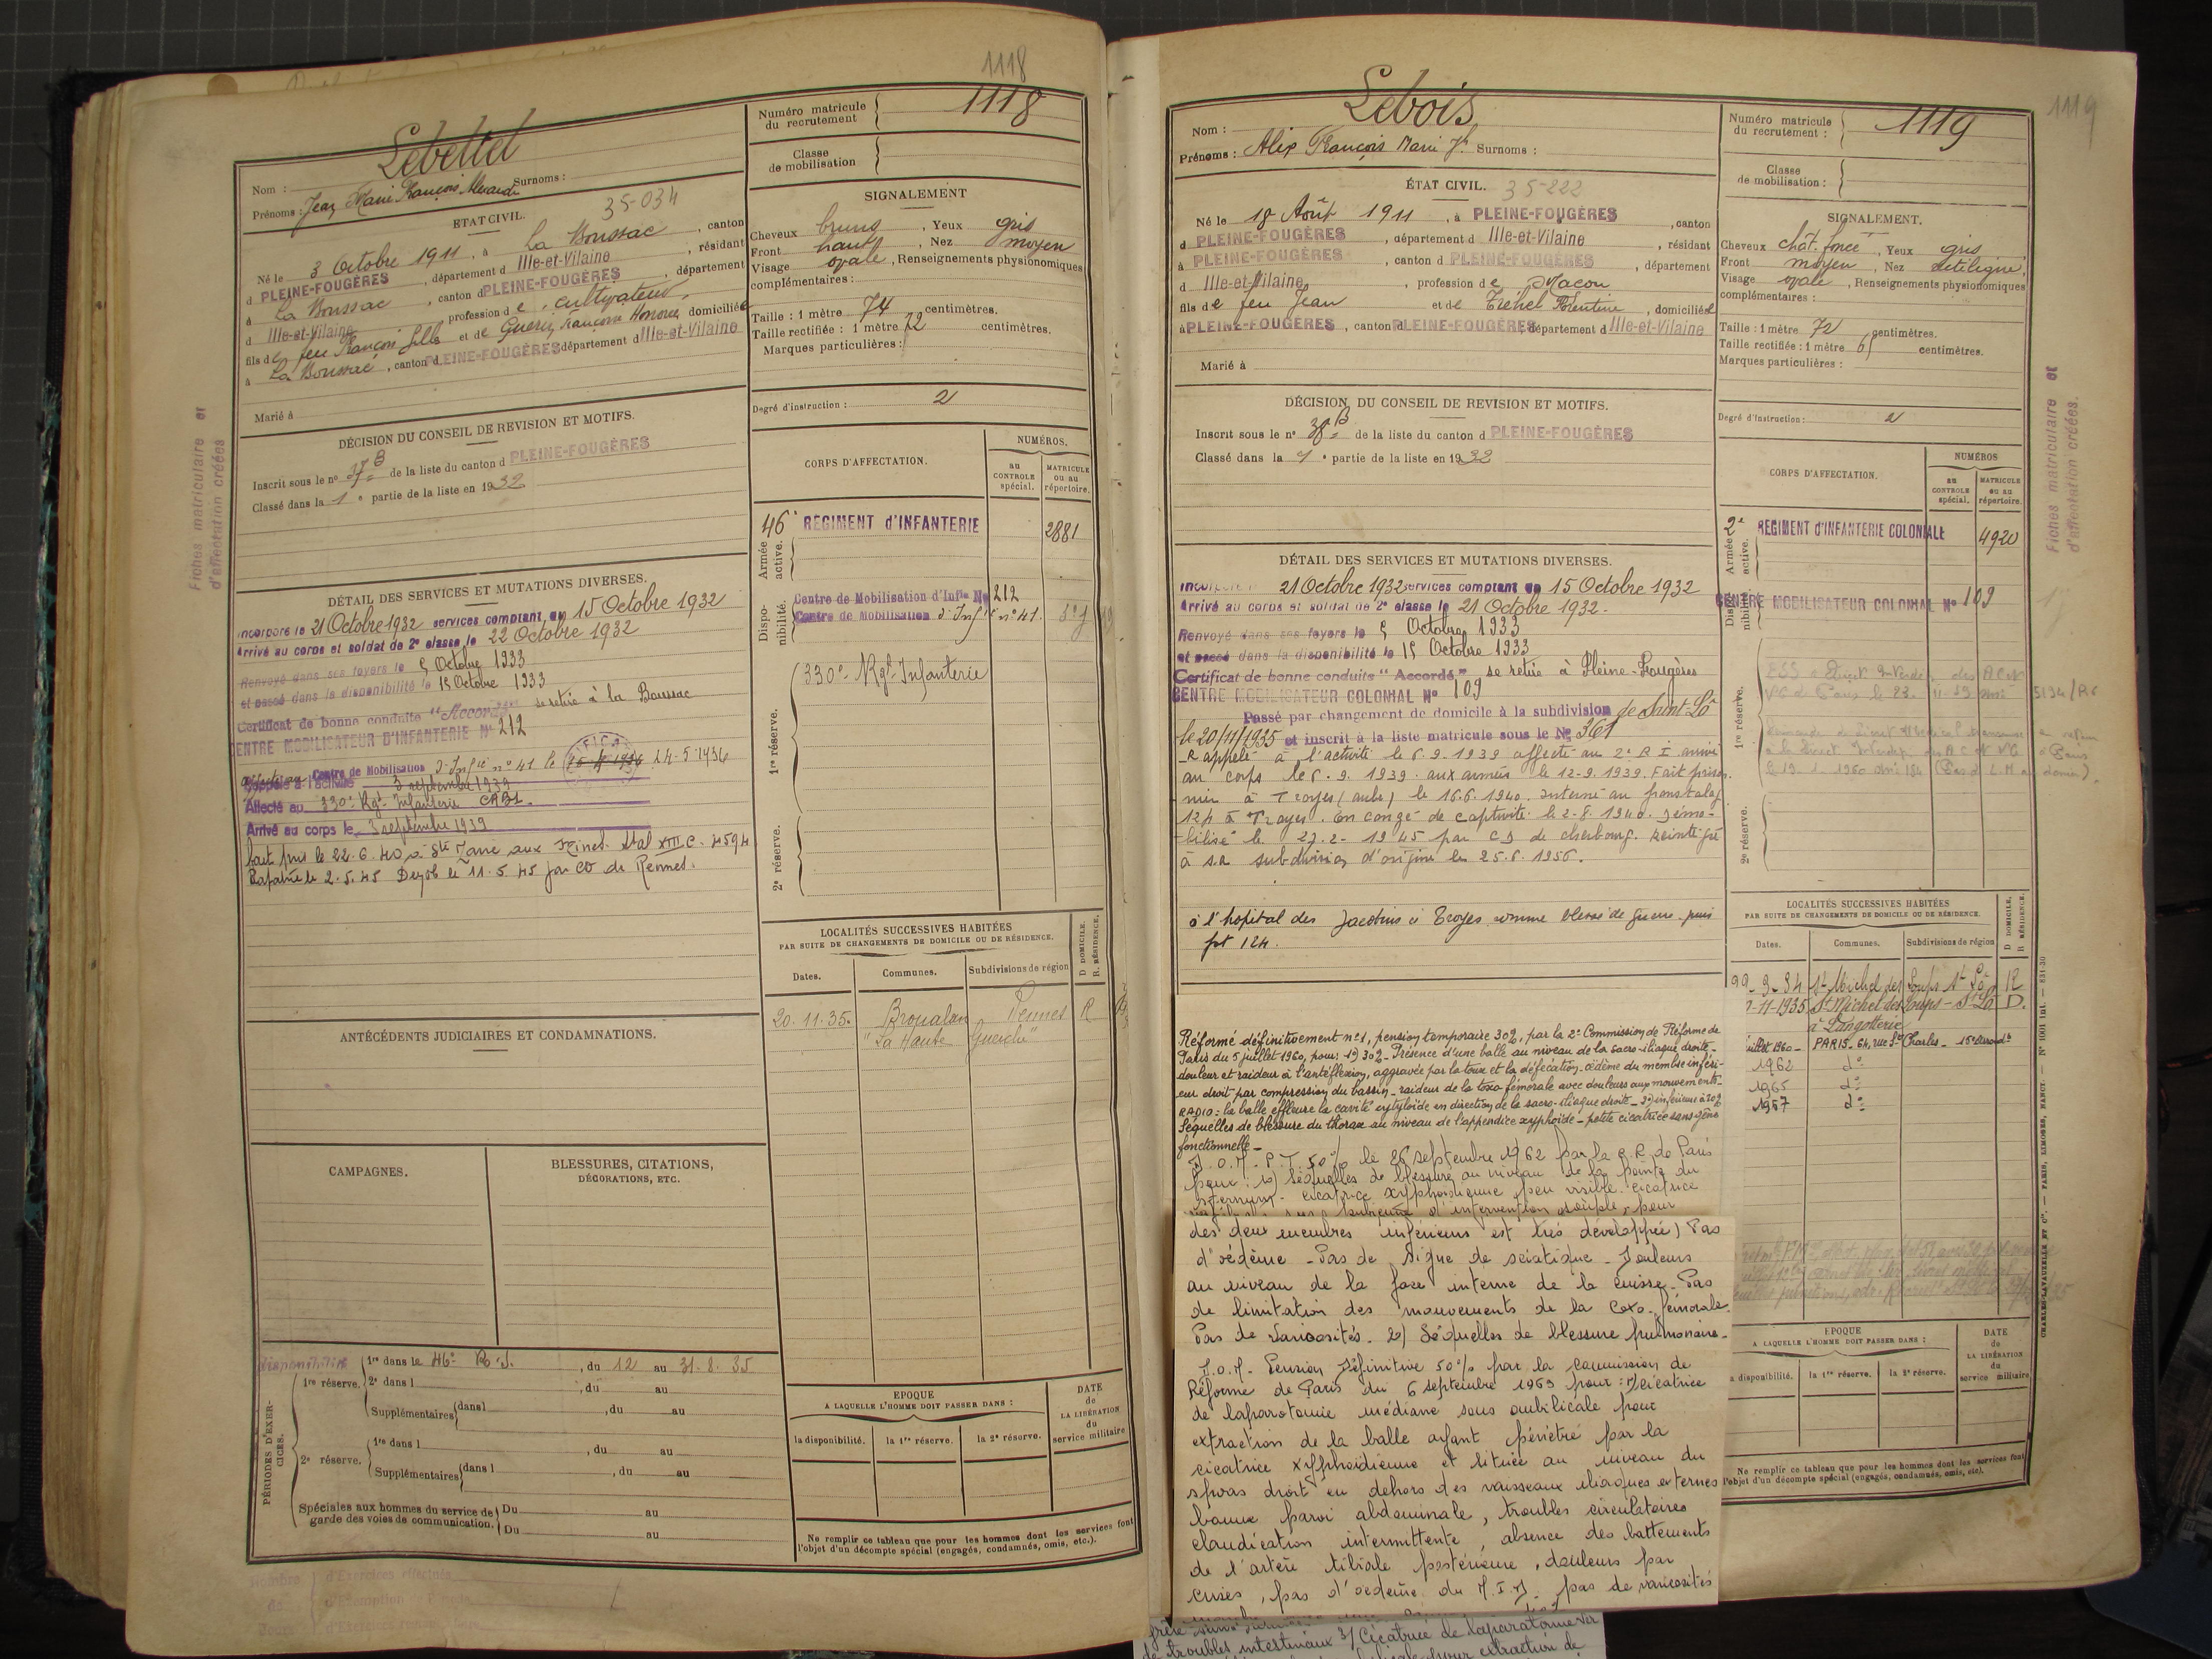 1118
Nom : Lebettel
Prénoms : Jean Marie François Surnoms :
ETAT CIVIL. 35-034
Né le 3 Octobre 1911, à La Boussac, canton
d PLEINE-FOUGÈRES, département d Ille-et-Vilaine, résidant
à La Boussac, canton d PLEINE-FOUGÈRES, département
d Ille-et-Vilaine profession de cultivateur
fils de feu François et de Guérin Françoise Honorée domiciliée
à La Boussac, canton d PLEINE-FOUGÈRES département d Ille-et-Vilaine
Marié à
DÉCISION DU CONSEIL DE REVISION ET MOTIFS.
Inscrit sous le nº 37 B de la liste du canton d PLEINE-FOUGÈRES
Classé dans la 1e partie de la liste en 1932
DÉTAIL DES SERVICES ET MUTATIONS DIVERSES.
Incorporé le 21 Octobre 1932 services comptant du 15 Octobre 1932
Arrivé au corps et soldat de 2e classe le 22 Octobre 1932
Renvoyé dans ses foyers le 5 Octobre 1933
et passé dans la disponibilité le 15 Octobre 1933
Certificat de bonne conduite "Accordé" se retire à la Boussac
CENTRE MOBILISATEUR D'INFANTERIE Nº 212
Affecté au Centre de Mobilisation d'Infie nº 41 le 14-5-1936
Rappelé à l'activité 3 septembre 1939
Affecté au 330e Rgt Infanterie
Arrivé au corps le 3 septembre 1939
Fait pris le 22.6.40 à Ste Marie aux Mines. Stal XIII C. 4594
Rapatrié le 2.5.45 Demob le 11.5.45 par CD de Rennes.
ANTÉCÉDENTS JUDICIAIRES ET CONDAMNATIONS.
CAMPAGNES.
BLESSURES, CITATIONS,
DÉCORATIONS, ETC.
PÉRIODES D'EXERCICES.
disponibilité
1re réserve. 1re dans le 46e R.I., du 12 au 31.8.35
2e dans l , du au
Supplémentaires dans l , du au
2e réserve. 1re dans l , du au
Supplémentaires dans l , du au
Spéciales aux hommes du service de garde des voies de communication. Du au
Du au
Fiches matriculaire et
d'affectation créées
Numéro matricule
du recrutement 1118
Classe
de mobilisation
SIGNALEMENT
Cheveux bruns, Yeux gris
Front haut, Nez moyen
Visage ovale, Renseignements physionomiques
complémentaires :
Taille : 1 mètre 74 centimètres.
Taille rectifiée : 1 mètre 72 centimètres.
Marques particulières :
Degré d'instruction : 2
CORPS D'AFFECTATION.
NUMÉROS.
au CONTROLE spécial.
MATRICULE ou au répertoire.
Armée active.
46e RÉGIMENT d'INFANTERIE 2881
Disponibilité.
Centre de Mobilisation d'Infie No 212
Centre de Mobilisation d'Infie nº 41.
1re réserve.
330e Rgt Infanterie
2e réserve.
LOCALITÉS SUCCESSIVES HABITÉES
PAR SUITE DE CHANGEMENTS DE DOMICILE OU DE RÉSIDENCE.
D DOMICILE.
R. RÉSIDENCE.
Dates. Communes. Subdivisions de région
20.11.35. Broualan Rennes R
"La Haute Guerche"
EPOQUE
A LAQUELLE L'HOMME DOIT PASSER DANS :
DATE de LA LIBÉRATION du service militaire
la disponibilité. la 1re réserve. la 2e réserve.
Ne remplir ce tableau que pour les hommes dont les services font
l'objet d'un décompte spécial (engagés, condamnés, omis, etc.).
1119
Nom : Lebois
Prénoms : Alix François Marie Jh Surnoms :
ÉTAT CIVIL. 35-222
Né le 18 Août 1911, à PLEINE-FOUGÈRES, canton
d PLEINE-FOUGÈRES, département d Ille-et-Vilaine, résidant
à PLEINE-FOUGÈRES, canton d PLEINE-FOUGÈRES, département
d Ille-et-Vilaine, profession de Maçon
fils de feu Jean et de Tréhel Florentine, domiciliée
à PLEINE-FOUGÈRES, canton d PLEINE-FOUGÈRES département d Ille-et-Vilaine
Marié à
DÉCISION DU CONSEIL DE REVISION ET MOTIFS.
Inscrit sous le nº 38 B de la liste du canton d PLEINE-FOUGÈRES
Classé dans la 1e partie de la liste en 1932
DÉTAIL DES SERVICES ET MUTATIONS DIVERSES.
Incorporé le 21 Octobre 1932 services comptant du 15 Octobre 1932
Arrivé au corps et soldat de 2e classe le 21 Octobre 1932.
Renvoyé dans ses foyers le 5 Octobre 1933
et passé dans la disponibilité le 15 Octobre 1933
Certificat de bonne conduite "Accordé" se retire à Pleine-Fougères
CENTRE MOBILISATEUR COLONIAL Nº 109
Passé par changement de domicile à la subdivision de Saint-Lô
le 20/11/1935 et inscrit à la liste matricule sous le No 361
Rappelé à l'activité le 6.9.1939 affecté au 2e R I arrivé
au corps le 6.9.1939. aux armées le 12-9.1939. Fait prison-
nier à Troyes (aube) le 16.6.1940. Interné au fronstalag
124 à Troyes. En congé de captivité le 2.8.1940. Démo-
bilisé le 27.2-1945 par CD de cherbourg. Réintégré
à sa subdivision d'origine le 25.6.1956.
à l'hopital des Jacobins à Troyes comme blessé de guerre puis
fst 124.
Réformé définitivement nº1, pension temporaire 30%, par la 2e Commission de Réforme de
Paris du 5 juillet 1960, pour: 1º) 30% - Présence d'une balle au niveau de la sacro-iliaque droite -
douleur et raideur à l'antéflexion, aggravée par la toux et la défécation - œdème du membre inféri-
eur droit par compression du bassin - raideur de la coxo fémorale avec douleurs aux mouvements -
RADIO : la balle effleure la cavité cotyloïde en direction de la sacro-iliaque droite - 2º) inférieur à 10%
Séquelles de blessure du thorax au niveau de l'appendice xyphoïde - petite cicatrice sans gêne
fonctionnelle -
P.T. 50% le 26 septembre 1962 par la C.R. de Paris
pour : 1º) Séquelles de blessure au niveau de la pointe du
sternum. cicatrice xyphoïdienne peu visible. cicatrice
d'intervention souple, pour
des deux membres inférieurs est très développée) Pas
d'œdème - Pas de signe de sciatique - Douleurs
au niveau de la face interne de la cuisse - Pas
de limitation des mouvements de la Coxo-fémorale.
Pas de varicosités. 2) Séquelles de blessure pulmonaire -
Pension Définitive 50% par la commission de
Réforme de Paris du 6 septembre 1963 pour : 1) cicatrice
de laparotomie médiane sous ombilicale pour
extraction de la balle ayant pénétré par la
cicatrice xyphoïdienne et située au niveau du
spoas droit en dehors des vaisseaux iliaques externes
bonne paroi abdominale, troubles circulatoires
claudication intermittente, absence des battements
de l'artère tibiale postérieure, douleurs par
crises, pas d'œdème du M.I.D. pas de varicosités
de troubles intestinaux 3/ Cicatrice de laparatomie
pour extraction de
Numéro matricule
du recrutement : 1119
Classe
de mobilisation :
SIGNALEMENT.
Cheveux chât. foncé, Yeux gris
Front moyen, Nez rectiligne
Visage ovale, Renseignements physionomiques
complémentaires :
Taille : 1 mètre 72 centimètres.
Taille rectifiée : 1 mètre centimètres.
Marques particulières :
Degré d'instruction : 2
CORPS D'AFFECTATION.
NUMÉROS
au CONTROLE spécial.
MATRICULE ou au répertoire.
Armée active.
2e RÉGIMENT d'INFANTERIE COLONIALE 4920
Disponibilité.
CENTRE MOBILISATEUR COLONIAL Nº 109
1re réserve.
5134/RC
2e réserve.
LOCALITÉS SUCCESSIVES HABITÉES
PAR SUITE DE CHANGEMENTS DE DOMICILE OU DE RÉSIDENCE.
D DOMICILE.
R RÉSIDENCE.
Dates. Communes. Subdivisions de région
St Michel des Loups St Lô R
11-1935 St Michel des Loups - St Lô D.
à Langotterie
juillet 1960 - PARIS - 64, rue St Charles - 15e Arrondt
1962 do
1965 do
1957 do
EPOQUE
A LAQUELLE L'HOMME DOIT PASSER DANS :
DATE de LA LIBÉRATION du service militaire
la disponibilité. la 1re réserve. la 2e réserve.
Ne remplir ce tableau que pour les hommes dont les services font
l'objet d'un décompte spécial (engagés, condamnés, omis, etc).
Fiches matriculaire et
d'affectation créées.
CHARLES-LAVAUZELLE ET Cie. — PARIS, LIMOGES, NANCY. — Nº 1001 — 831-30